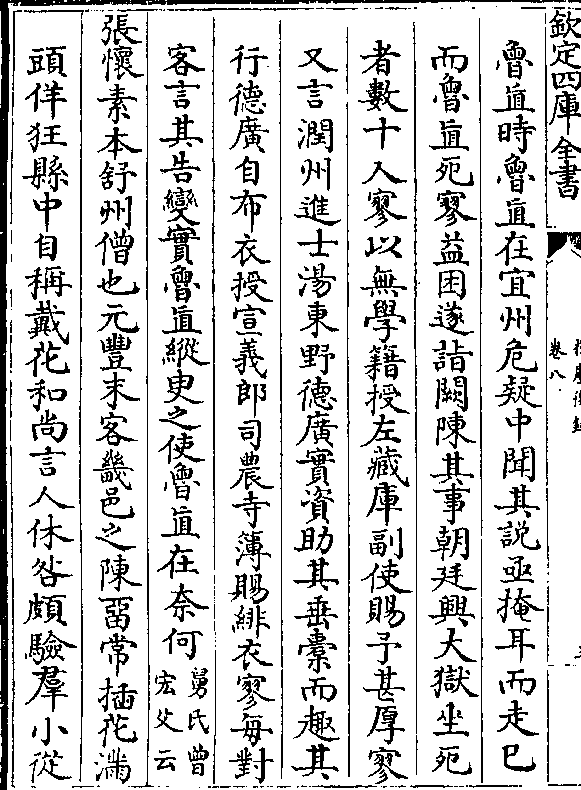 欽定四庫全書
卷八
魯直時魯直在宜州危疑中聞其說亟掩耳而走已
而魯直死寥益困遂詣闕陳其事朝廷興大獄坐死
者數十人寥以無學籍授左藏庫副使賜予甚厚寥
又言潤州進士湯東野德廣實資助其垂橐而趣其
行德廣自布衣授宣義郎司農寺簿賜緋衣寥每對
客言其告變實魯直縱臾之使魯直在奈何
舅氏曾
宏父云
張懷素本舒州僧也元豐末客畿邑之陳留常插花滿
頭佯狂縣中自稱戴花和尚言人休咎頗驗羣小從